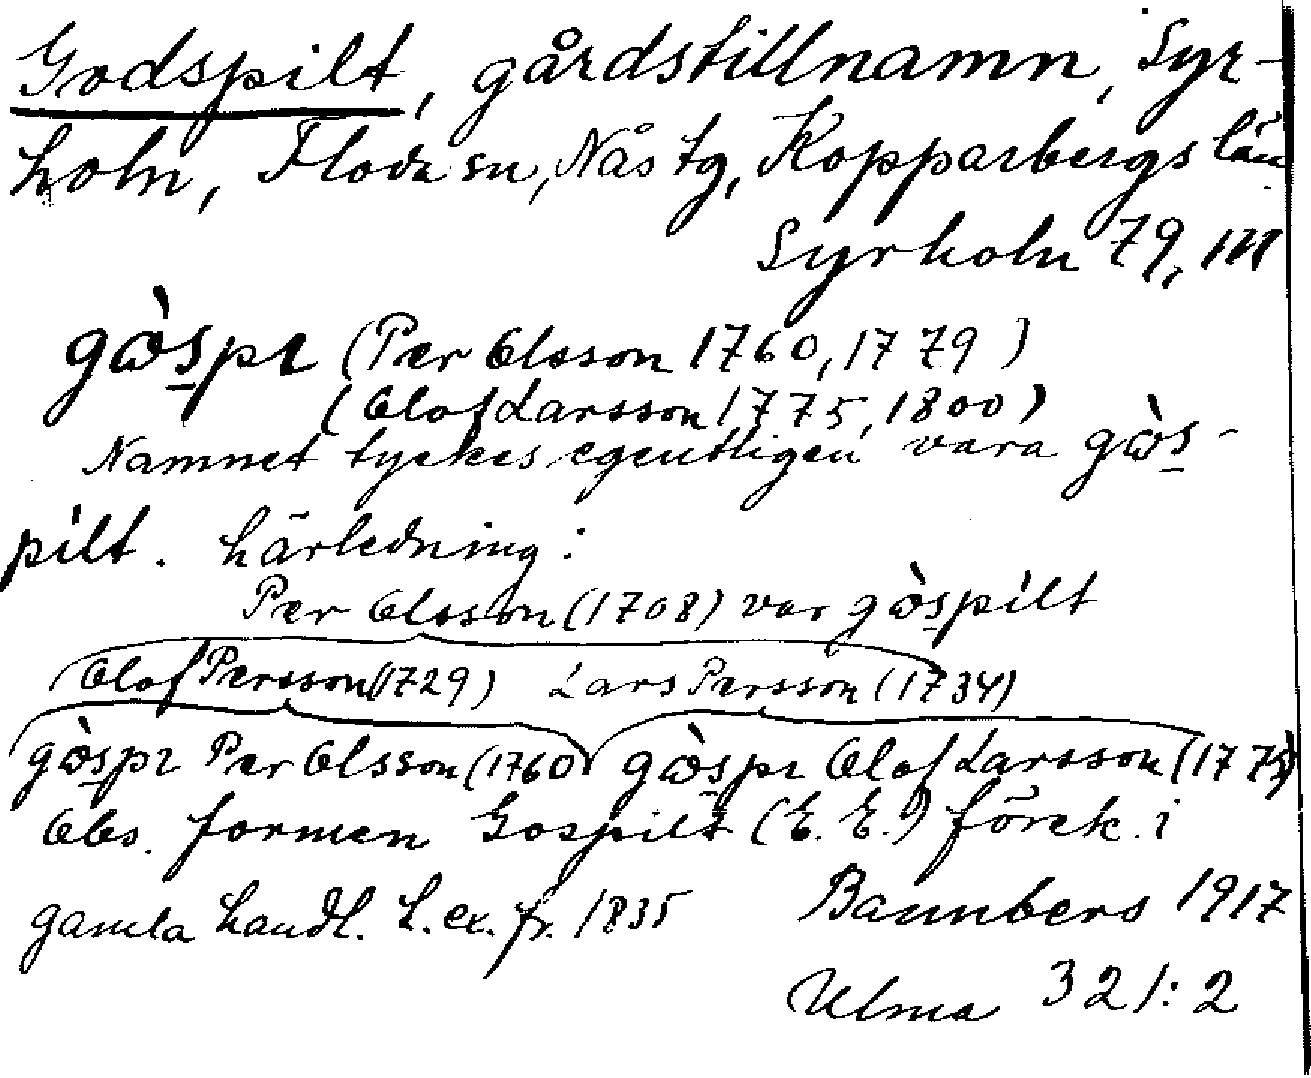 Godspilt, gårdstillnamn, Syr-
holn, Floda sn, Nås tg, Kopparbergs län
Syrholn 79, m
gòspr (Per Olsson 1760, 1779)
(Olof Larsson 1775, 1800)
Namnet tyckes egentligen vara gòs-
pìlt. härledning:
Per Olsson (1708) var gòspìlt
Olof Persson (1729) Lars Persson (1734)
gòspr Per Olsson (1760) gòspr Olof Larsson (1775)
Obs. formen Gospilt (E. E.) förek. i
gamla handl. t. ex. fr. 1835 Bannbers 1917
Ulma 321:2